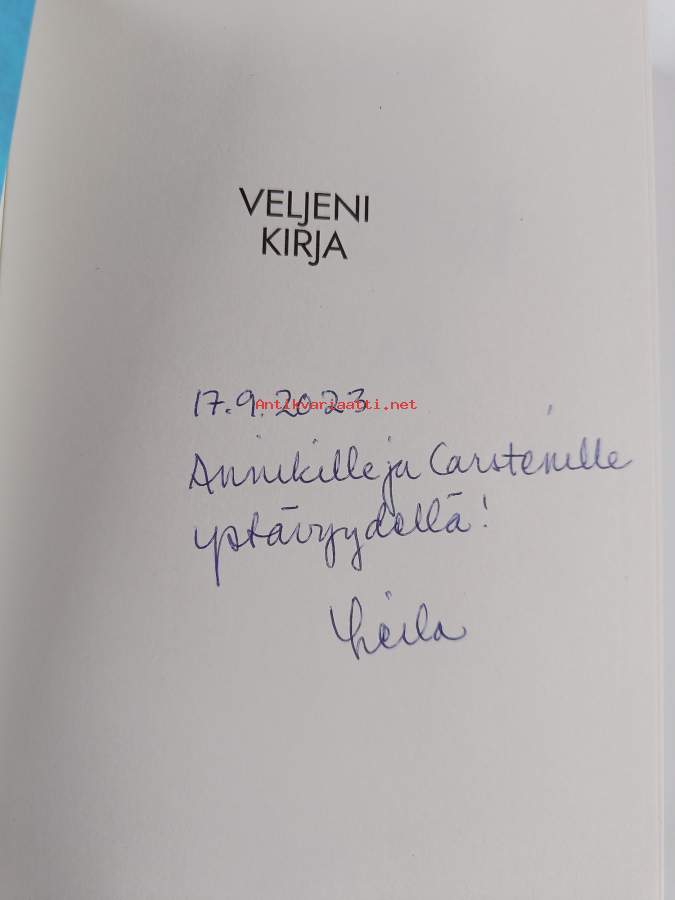 VELJENI
KIRJA
17.9.2023
Antikvariaatti.net
Annikille ja Carstenille
ystävyydellä!
Leila